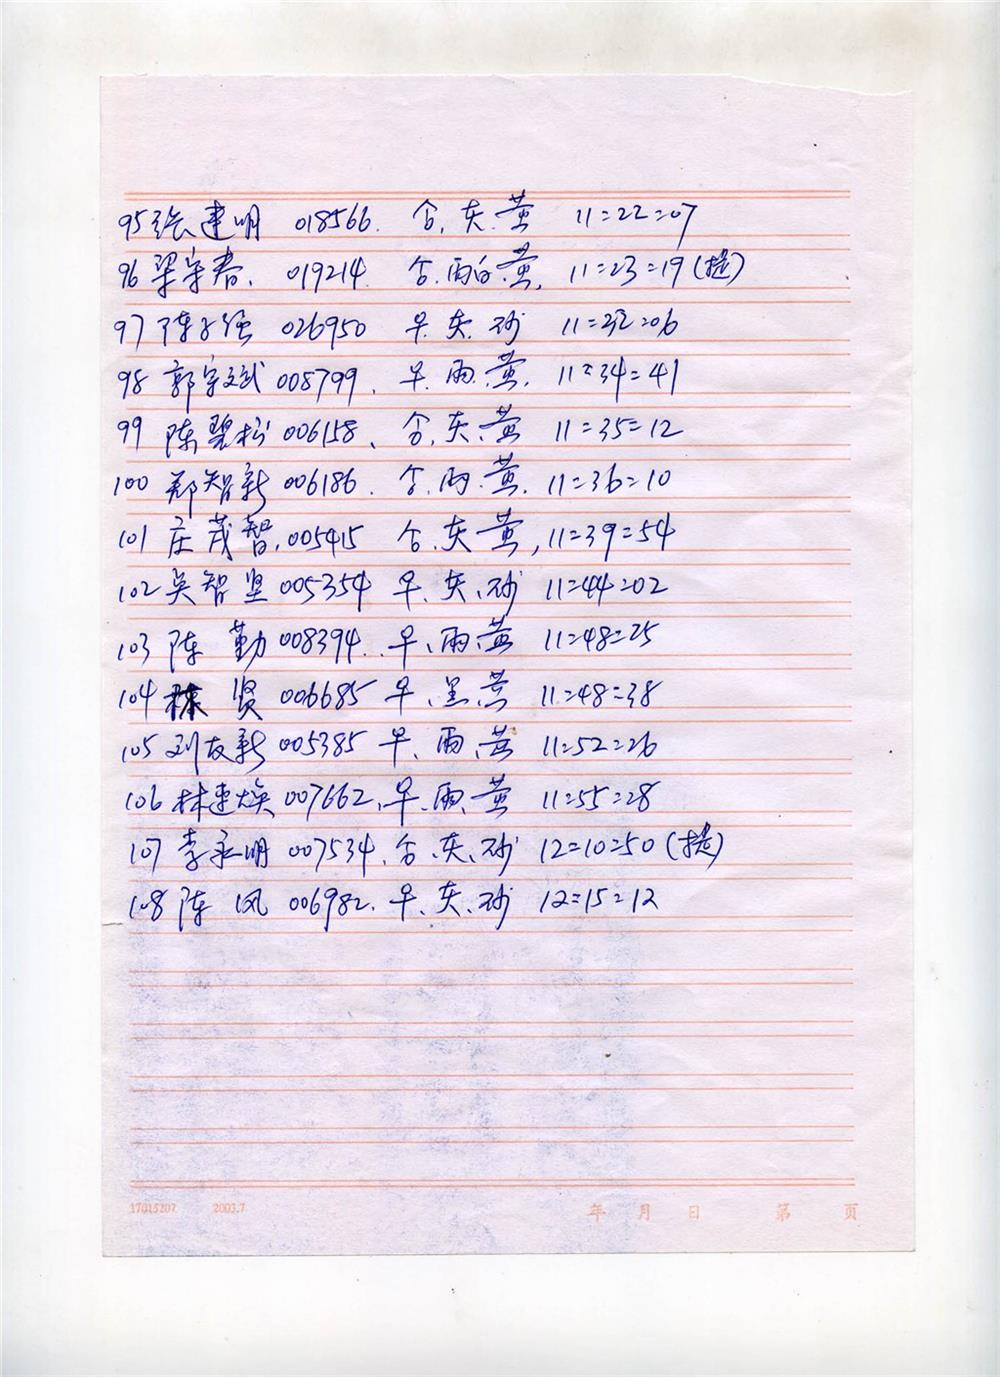 95 张建明 018566. 合.灰.黄 11=22=07
96 梁宗春. 019214. 合.雨白.黄. 11=23=19(提)
97 陈子强 026950 早.灰.砂 11=32=06
98 郭宇斌 008799. 早.雨.黄. 11=34=41
99 陈碧松 006158、合.灰.黄 11=35=12
100 郑智新 006186. 合.雨.黄. 11=36=10
101 庄茂智.005415 合.灰黄, 11=39=54
102 吴智坚 005354 早.灰、砂 11=44=02
103 陈 勤 008394. 早、雨、黄 11=48=25
104 林 贤 006685 早.黑、黄 11=48=38
105 刘友新 005385 早、雨、黄 11=52=26
106 林建焕 007662、早.雨、黄 11=55=28
107 李永明 007534.合.灰、砂 12=10=50(提)
108 陈 凤 006982. 早、灰、砂 12=15=12
17015207 2003.7 年 月 日 第 页